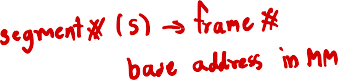 segment # (s) → frame #
base address in MM